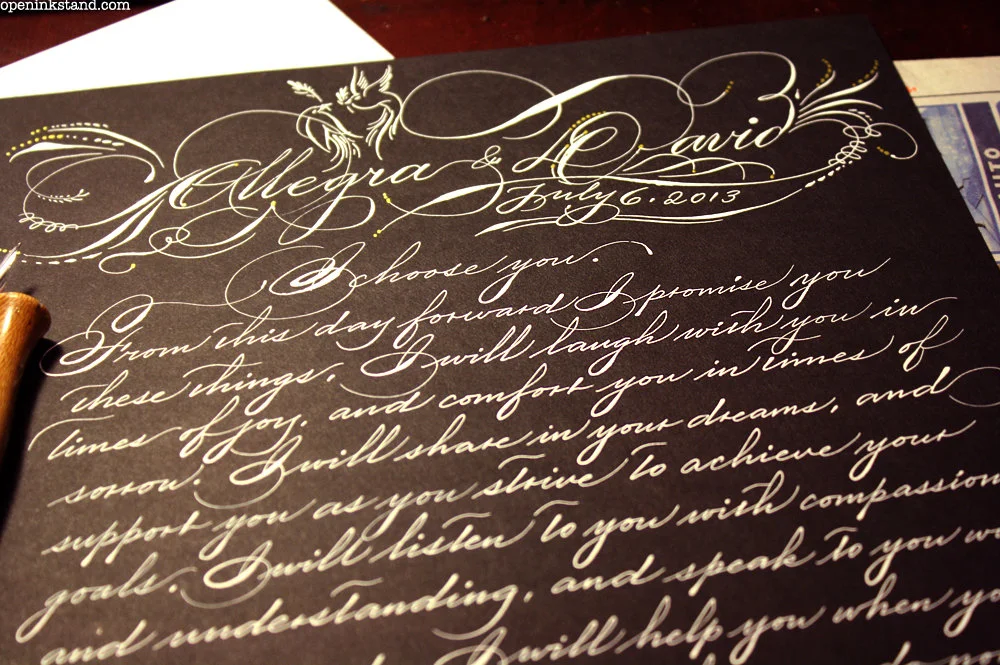 openinkstand.com
Allegra & David
July 6. 2013
I choose you.
From this day forward I promise you
these things. I will laugh with you in
times of joy, and comfort you in times of
sorrow. I will share in your dreams, and
support you as you strive to achieve your
goals. I will listen to you with compassion
and understanding, and speak to you
I will help you when